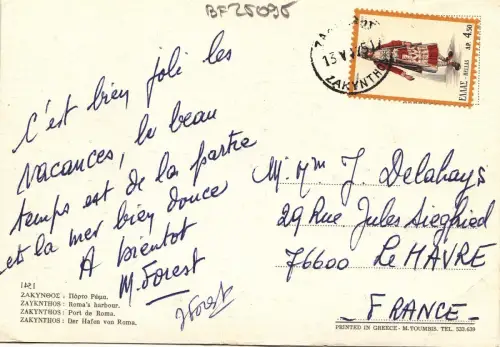 BF25095
ZAKYNTH
13 V
ΕΛΛΑΣ-HELLAS ΔΡ. 4,50
C'est bien joli les
vacances, le beau
temps est de la partie
et la mer bien douce
A bientot
M. Forest
J Forest
M. Mm J. Delahays
29 Rue Jules Siegfried
76600 Le HAVRE
FRANCE
1541
ΖΑΚΥΝΘΟΣ : Πόρτο Ρώμα.
ZAKYNTHOS : Roma's harbour.
ZAKYNTHOS : Port de Roma.
ZAKYNTHOS : Der Hafen von Roma.
PRINTED IN GREECE - M. TOUMBIS. TEL. 523.639